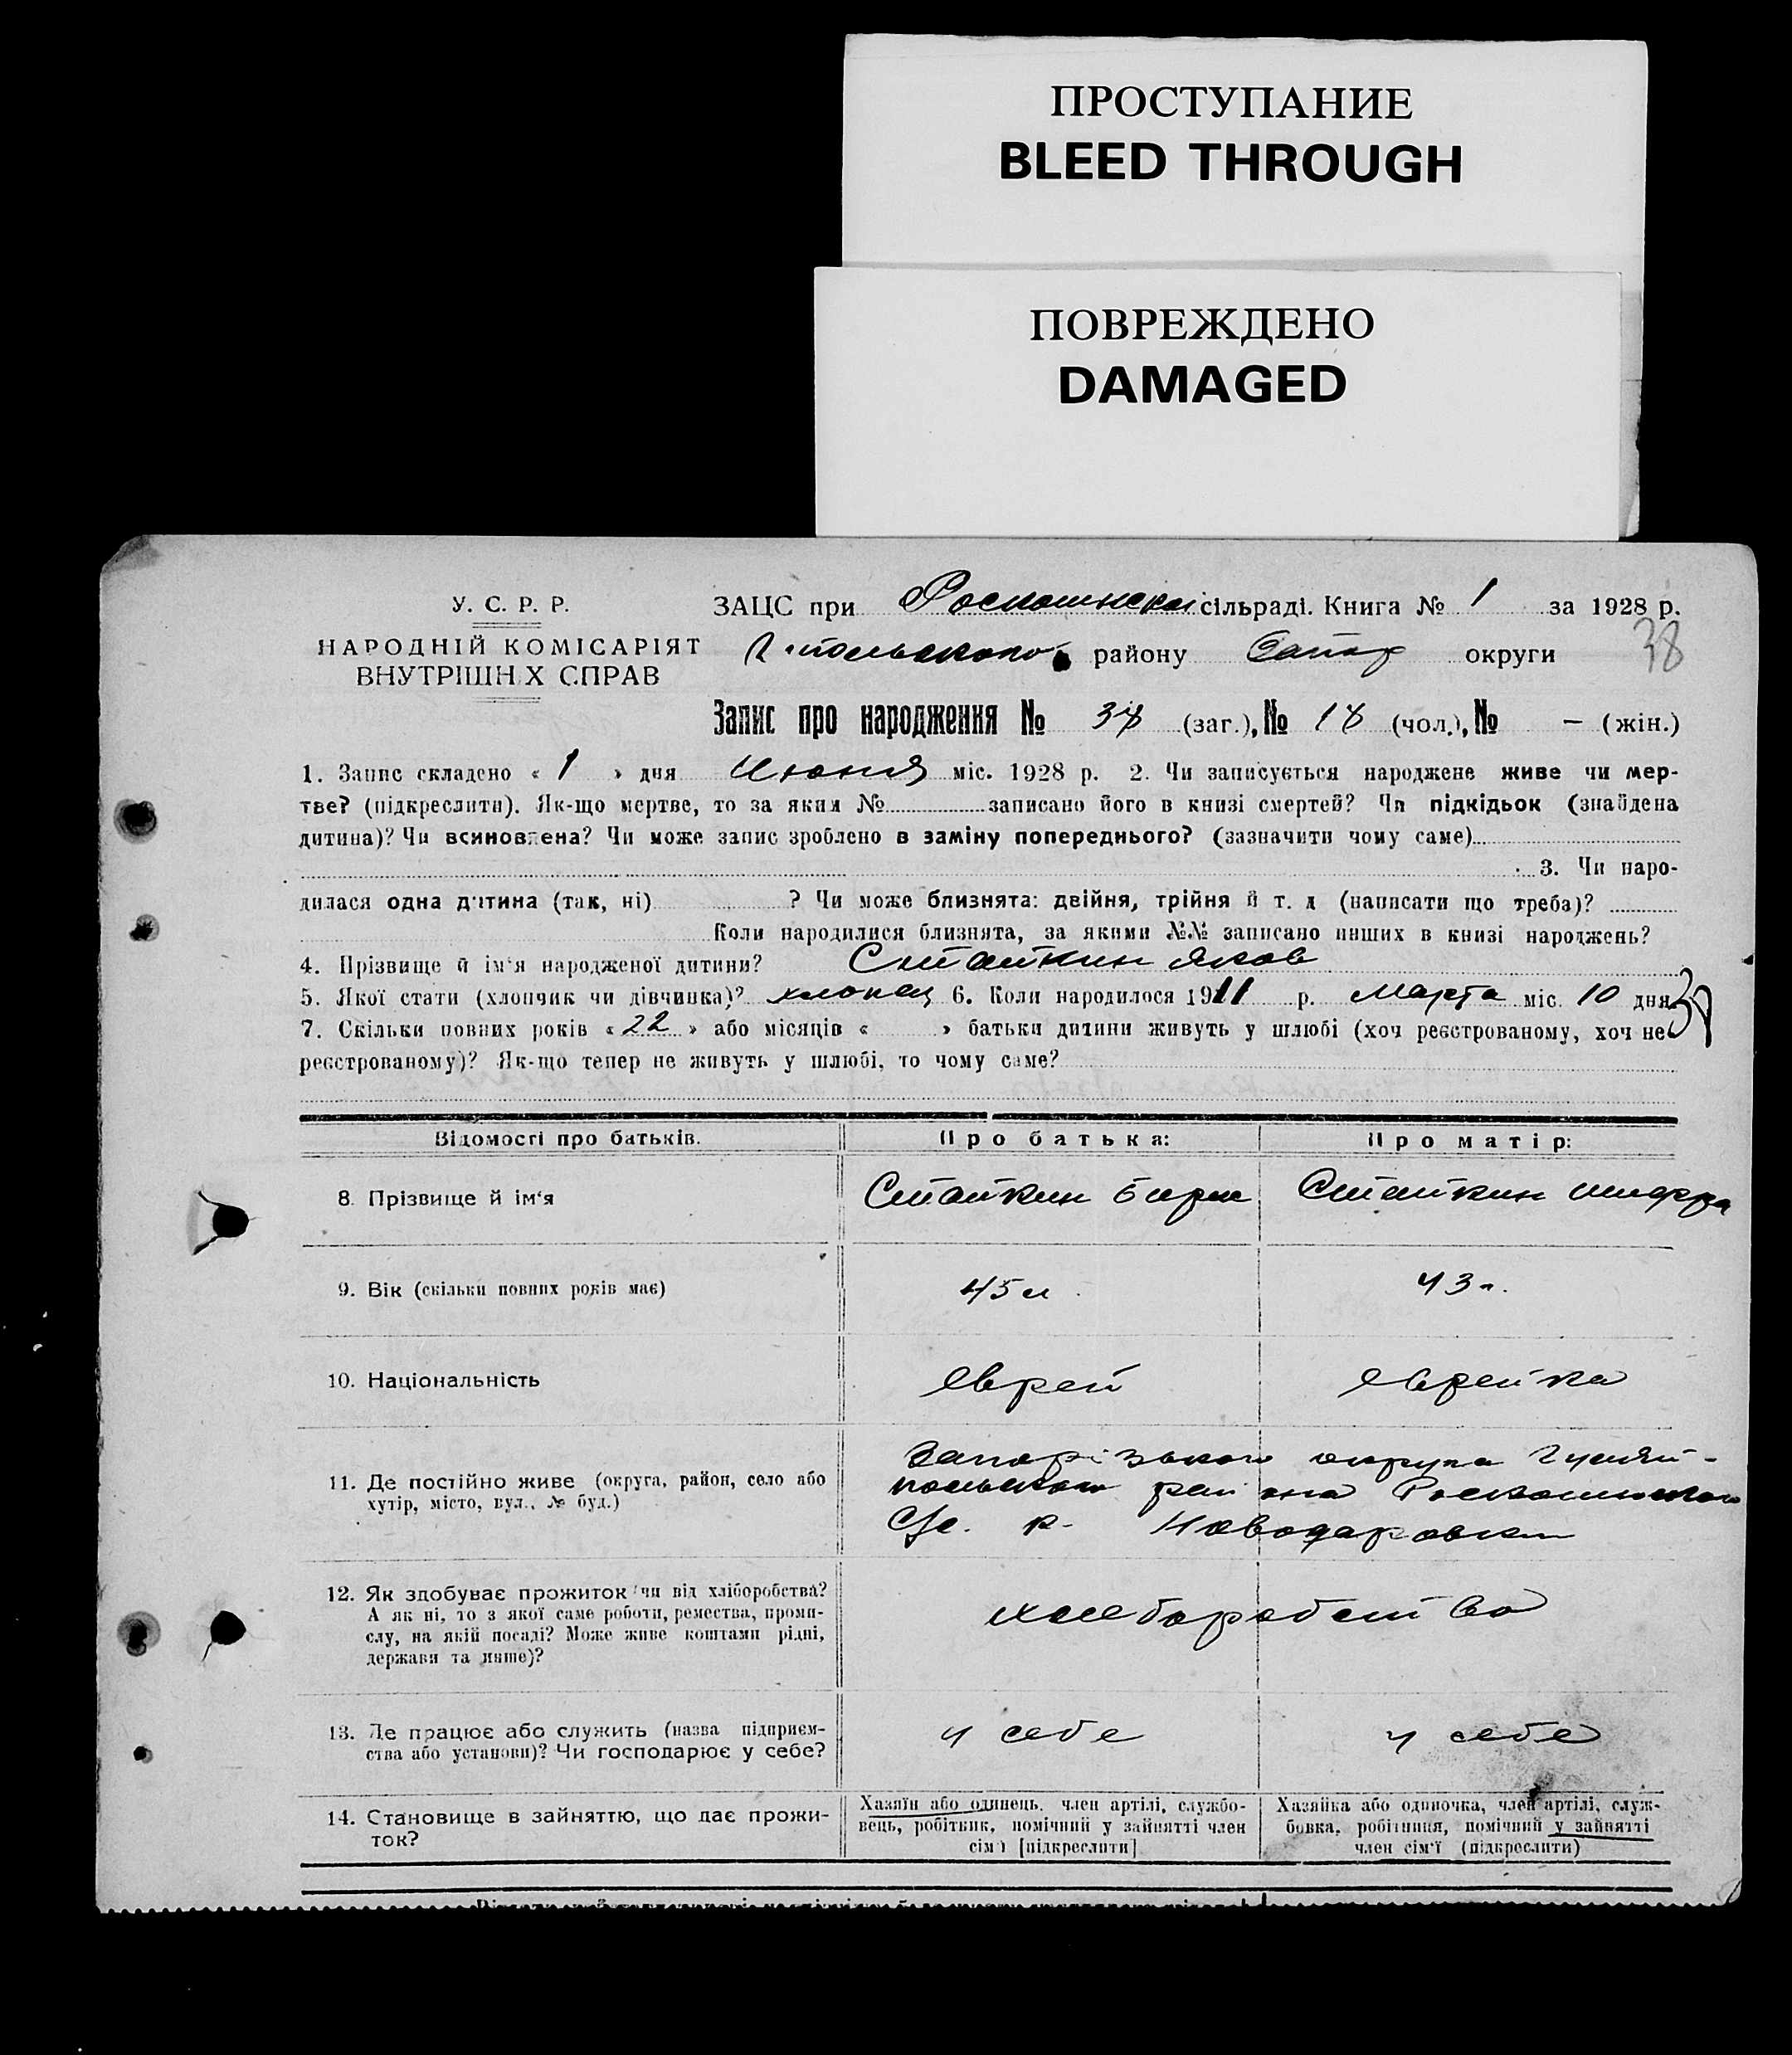 ПРОСТУПАНИЕ
BLEED THROUGH
ПОВРЕЖДЕНО
DAMAGED
У. С. Р. Р.
НАРОДНІЙ КОМІСАРІЯТ
ВНУТРІШН Х СПРАВ
ЗАЦС при Роскошнской сільраді. Книга № 1 за 1928 р.
Г-польского району Запор округи
38
Запис про народження № 38 (заг.), № 18 (чол.), № – (жін.)
1. Запис складено « 1 » дня Июня міс. 1928 р. 2. Чи записується народжене живе чи мер-
тве? (підкреслити). Як-що мертве, то за яким № записано його в книзі смертей? Чи підкідьок (знайдена
дитина)? Чи всиновлена? Чи може запис зроблено в заміну попереднього? (зазначити чому саме)
3. Чи наро-
дилася одна дитина (так, ні) ? Чи може близнята: двійня, трійня й т. д (написати що треба)?
Коли народилися близнята, за якими №№ записано инших в книзі народжень?
4. Прізвище й ім'я народженої дитини? Стайкин Яков
5. Якої стати (хлопчик чи дівчинка)? хлопец 6. Коли народилося 1911 р. Марта міс. 10 дня
7. Скільки повних років « 22 » або місяців « » батьки дитини живуть у шлюбі (хоч реєстрованому, хоч не
реєстрованому)? Як-що тепер не живуть у шлюбі, то чому саме?
Відомості про батьків. Про батька: Про матір:
8. Прізвище й ім'я Стайкин Стайкин Шифра
9. Вік (скільки повних років має) 45 л. 43 л.
10. Національність Еврей Еврейка
11. Де постійно живе (округа, район, село або
хутір, місто, вул., № буд.)
Запорізького округа Гуляй-
польского района Роскошинской
С/с. к. Новодаровка
12. Як здобуває прожиток чи від хліборобства?
А як ні, то з якої саме роботи, ремества, проми-
слу, на якій посаді? Може живе коштами рідні,
держави та инше)?
хлеборобство
13. Де працює або служить (назва підприєм-
ства або установи)? Чи господарює у себе?
у себе у себе
14. Становище в зайняттю, що дає прожи-
ток?
Хазяїн або одинець, член артілі, службо-
вець, робітник, помічний у зайнятті член
сім'ї [підкреслити]
Хазяйка або одиночка, член артілі, служ-
бовка, робітниця, помічний у зайнятті
член сім'ї (підкреслити)